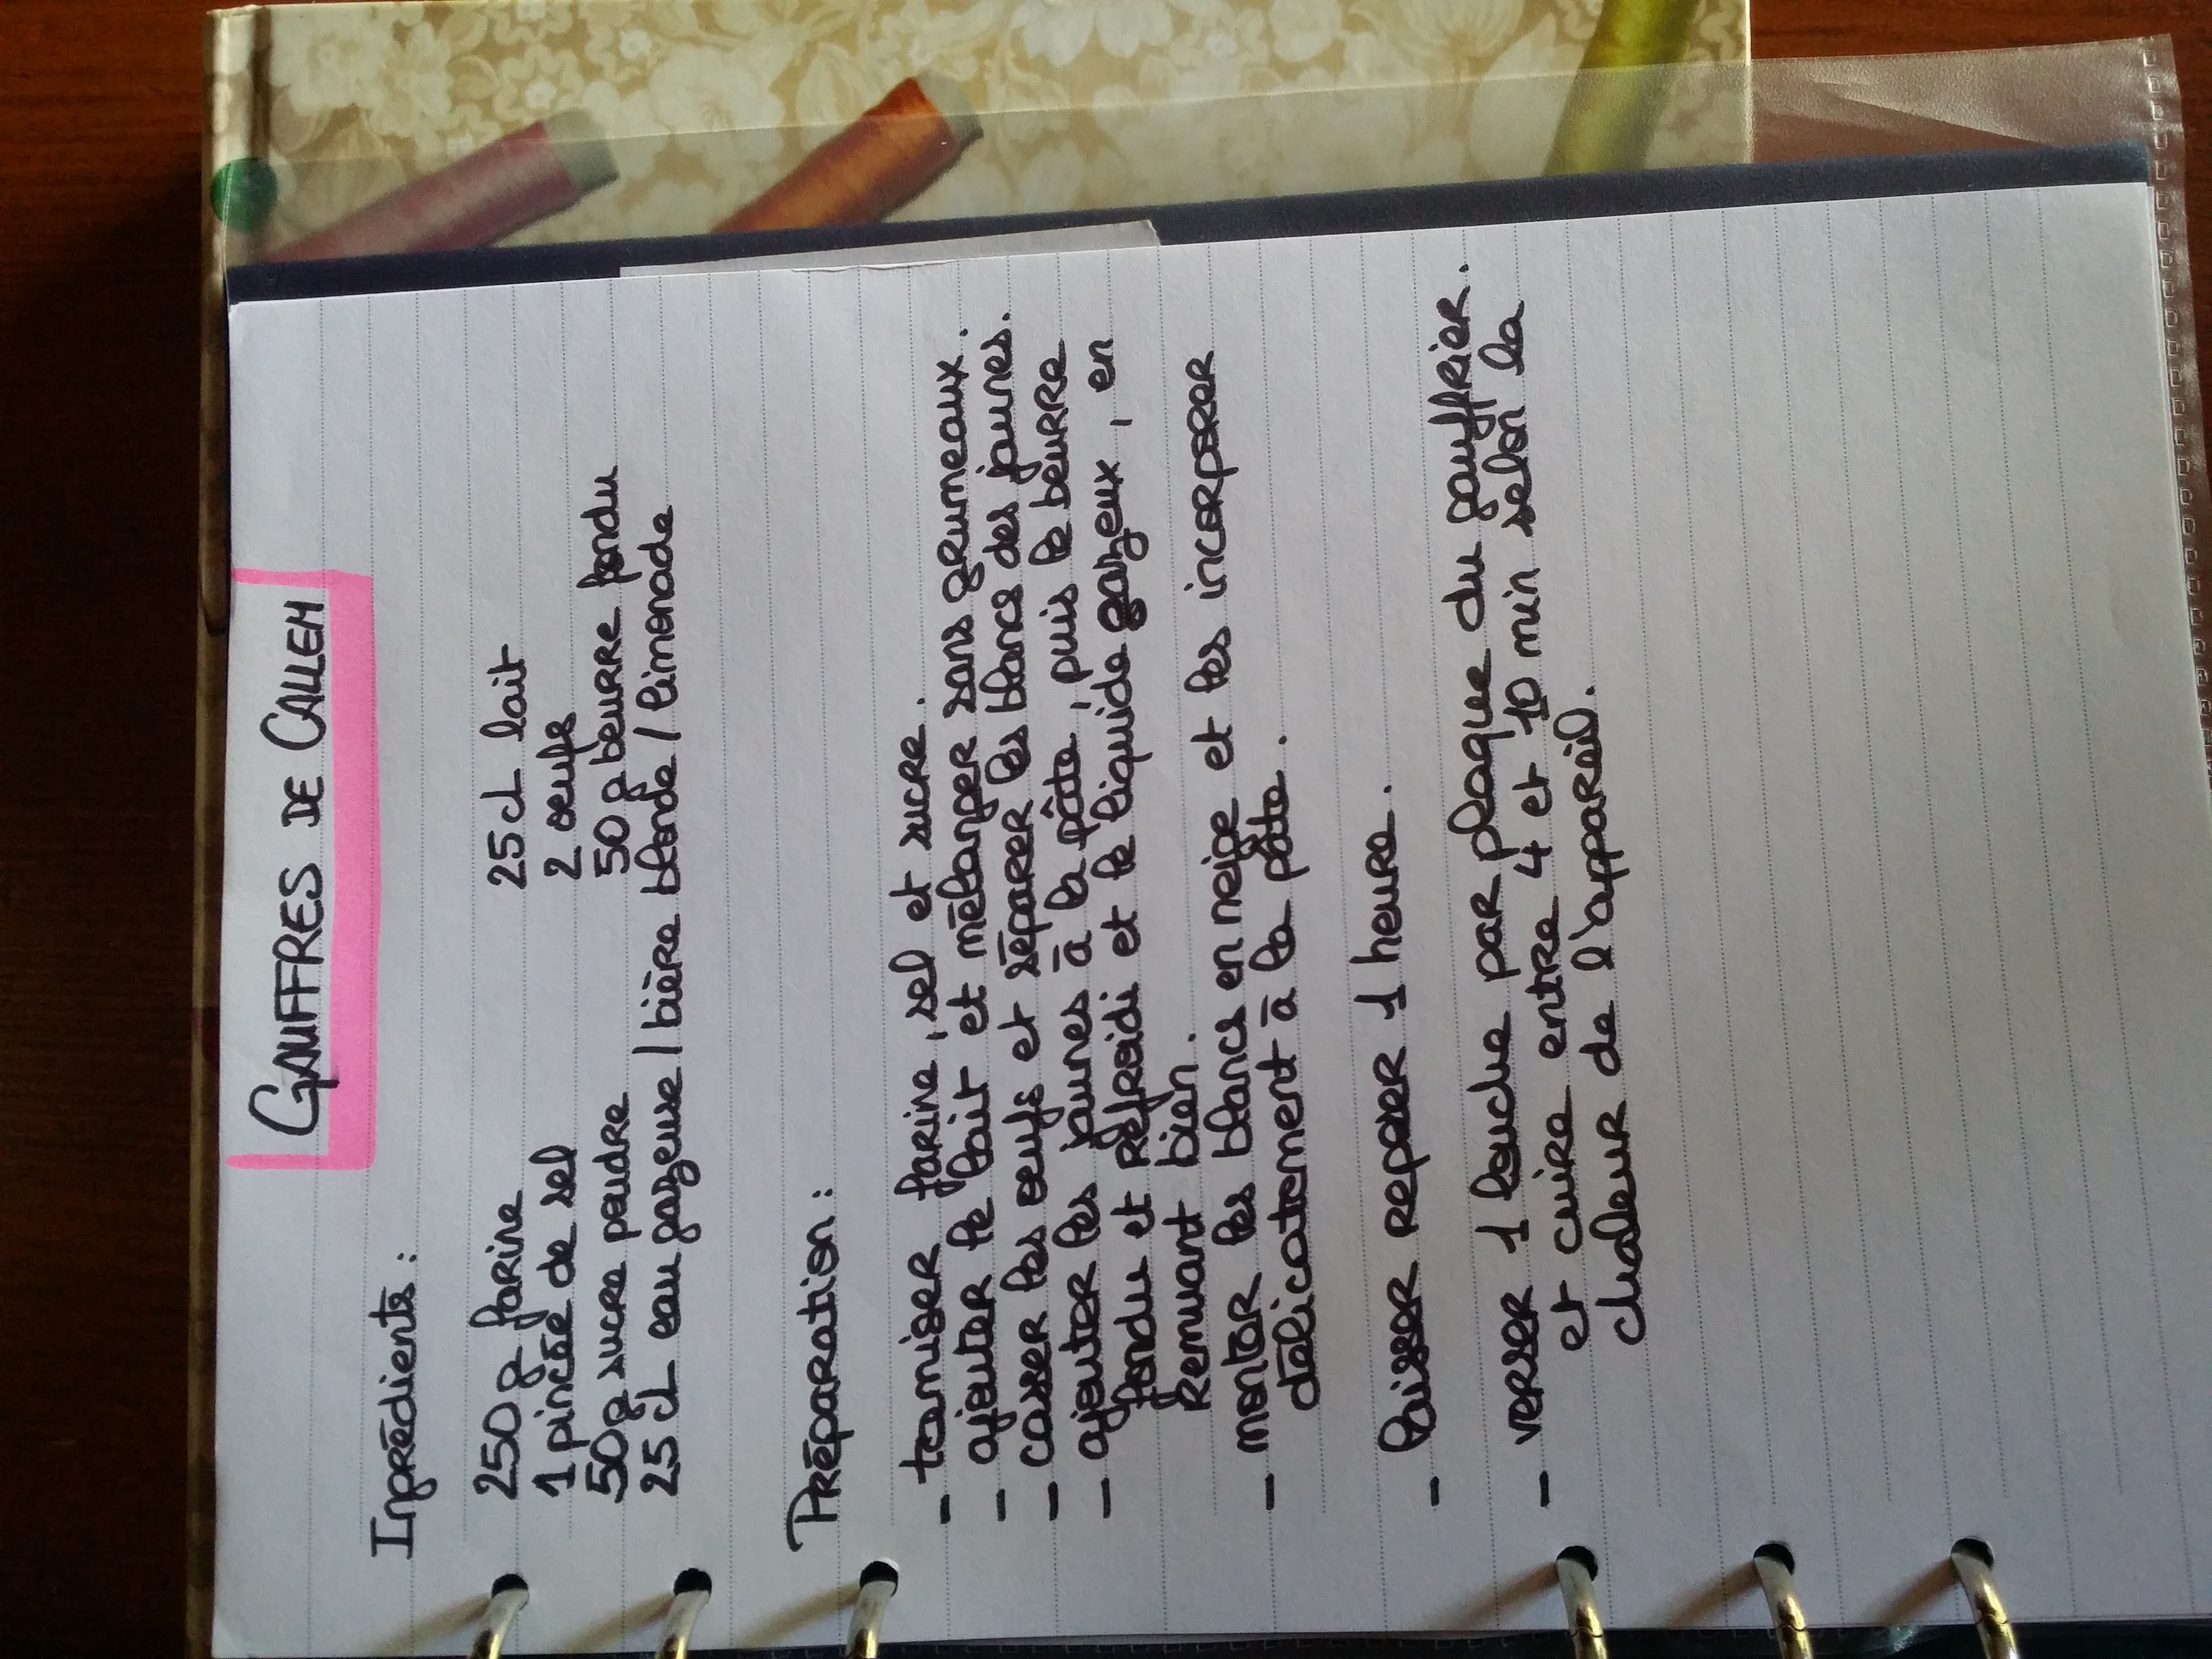 GAUFFRES DE CALLEM
Ingrédients :
250 g farine 25 cl lait
1 pincée de sel 2 oeufs
50 g sucre poudre 50 g beurre fondu
25 cl eau gazeuse / bière blonde / limonade
Préparation :
- tamiser farine, sel et sucre.
- ajouter le lait et mélanger sans grumeaux.
- casser les oeufs et séparer les blancs des jaunes.
- ajouter les jaunes à la pâte, puis le beurre
fondu et refroidi et le liquide gazeux, en
remuant bien.
- monter les blancs en neige et les incorporer
délicatement à la pâte.
- laisser reposer 1 heure.
- verser 1 louche par plaque du gauffrier.
et cuire entre 4 et 10 min selon la
chaleur de l'appareil.